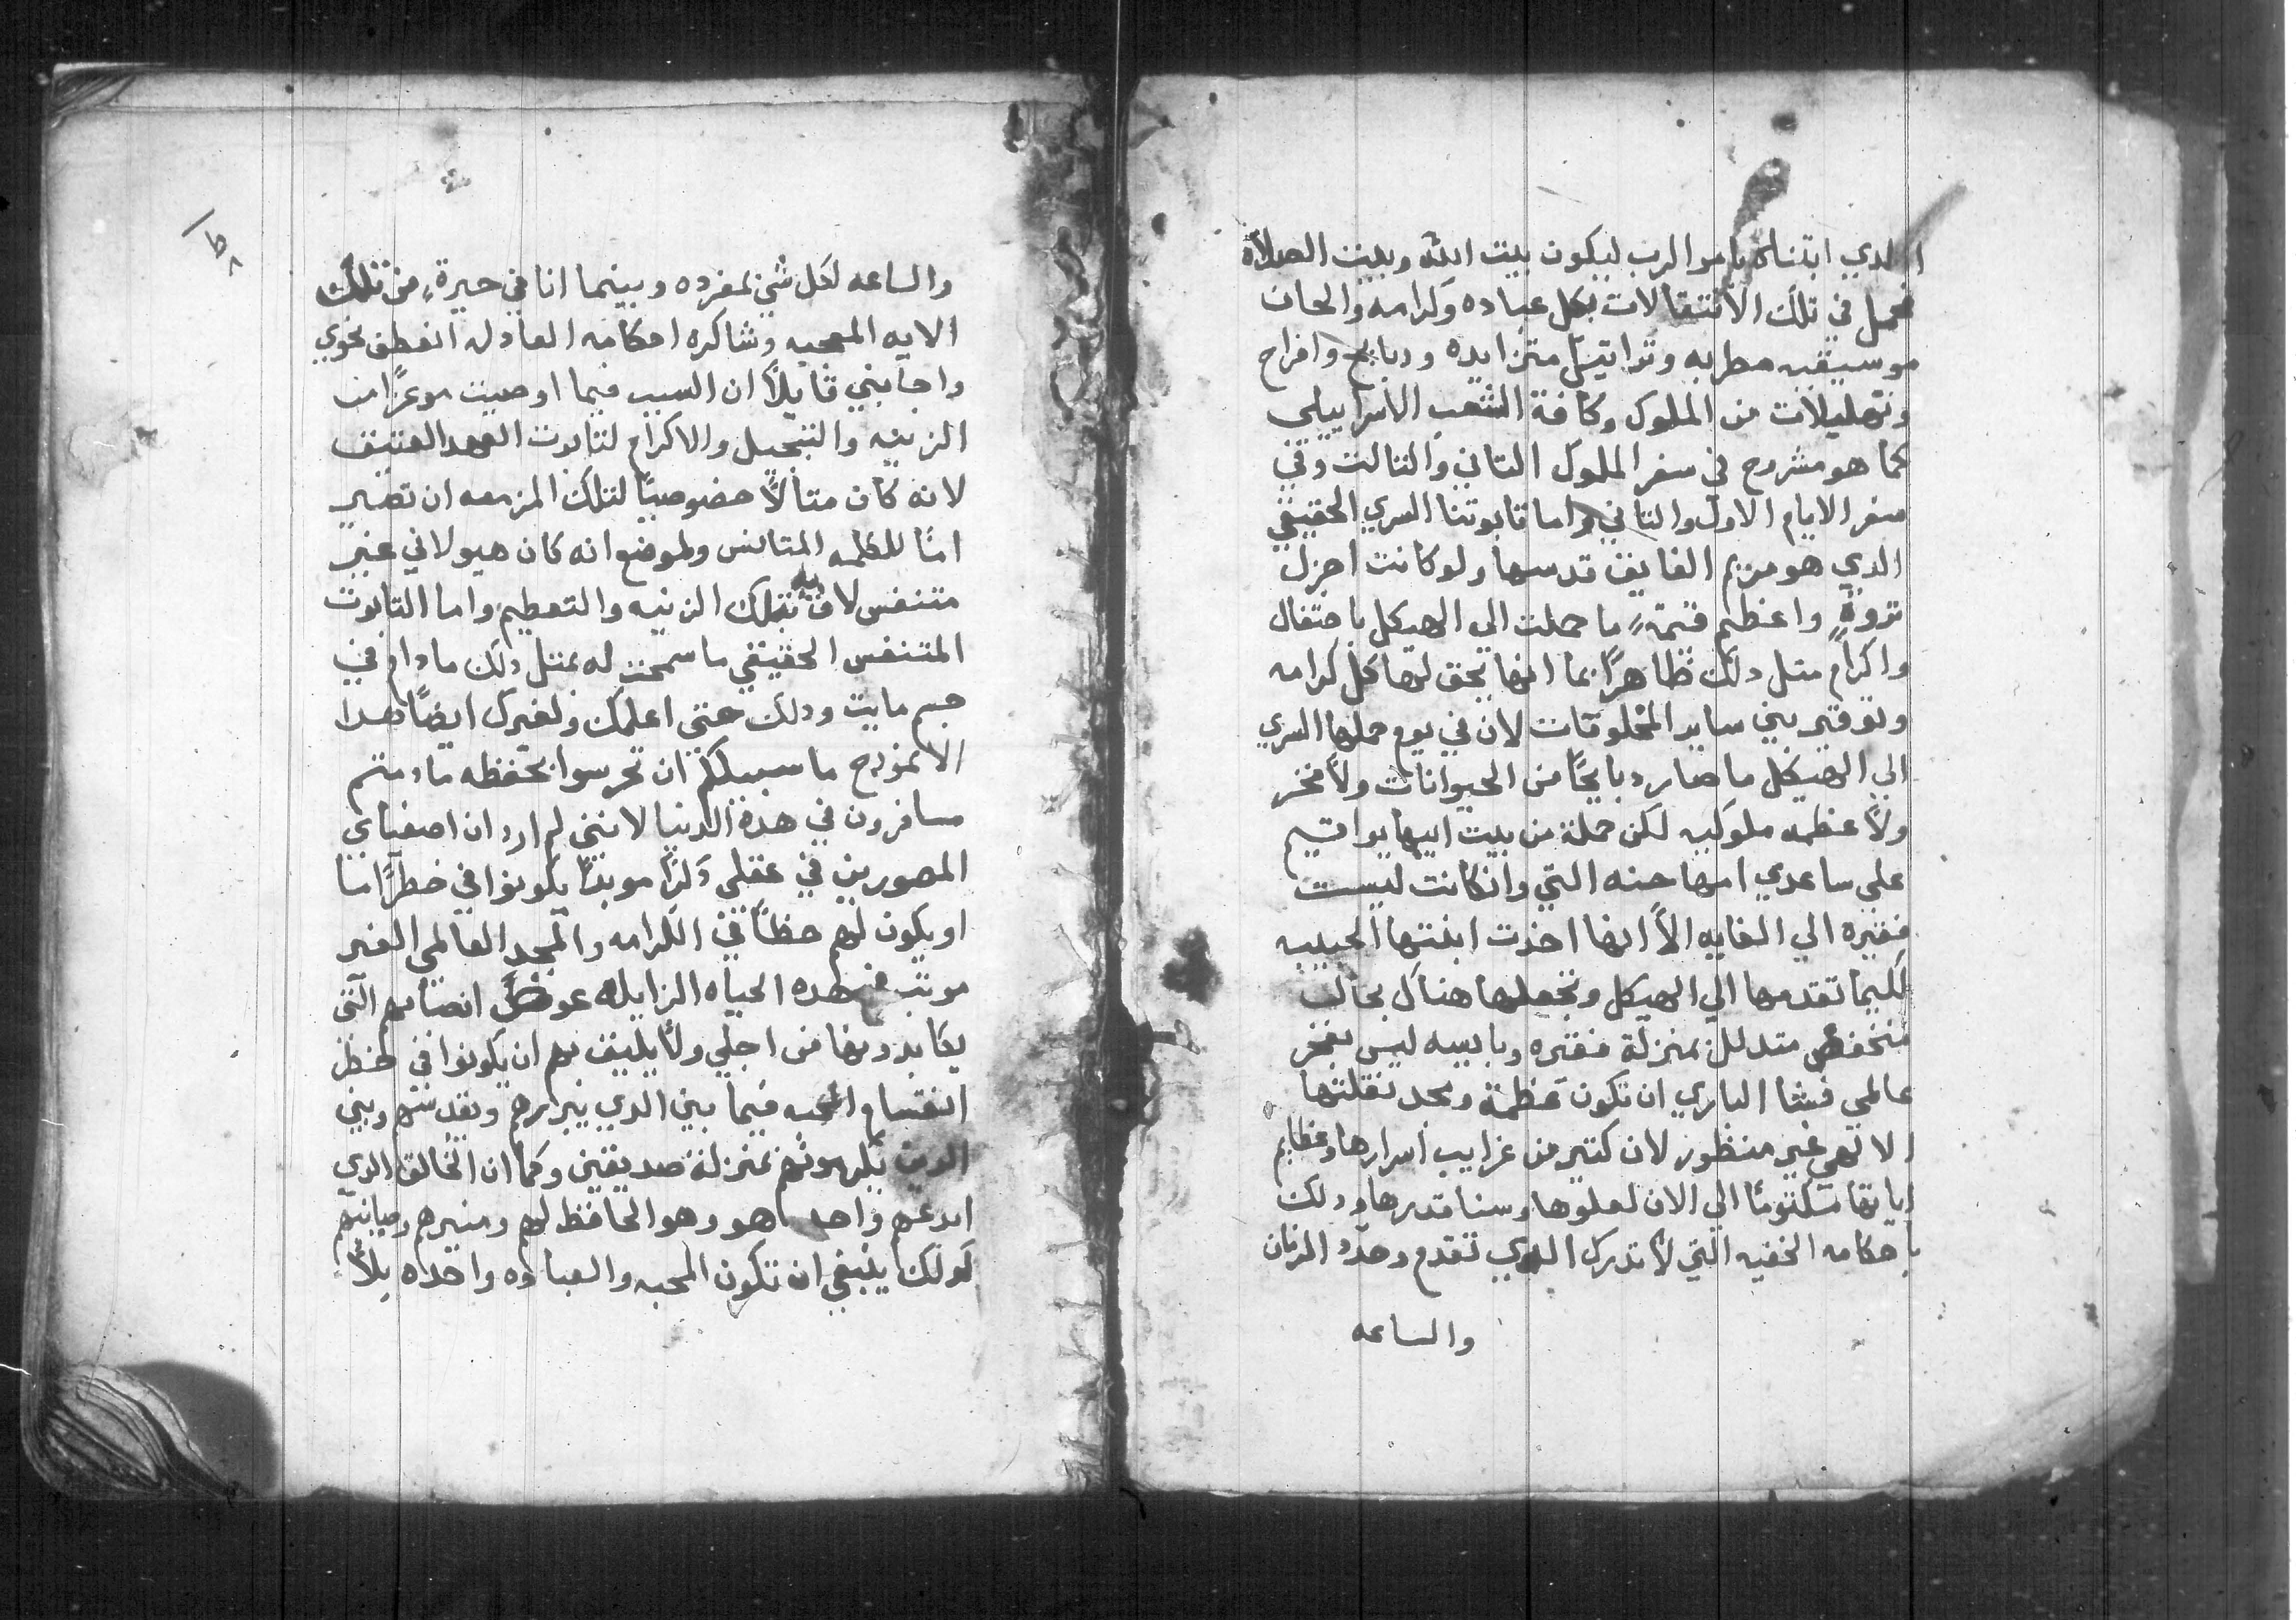 الدي ابتناه بامر الرب ليكون بيت الله وبيت الصلاة
فحمل في تلك الانتقالات بكل عباده وكرامه والحان
موسيقيه مطربه وتراتيل متزايده ودبايح وافراح
وتهليلات من الملوك وكافة الشعب الاسراييلي
كما هو مشروح في سفر الملوك التاني والتالت وفي
سفر الايام الاول والتاني واما تابوتنا السري الحقيقي
الدي هو مريم الفايق قدسها ولو كانت اجزل
تروةٍ واعظم قيمةٍ ما حملت الي الهيكل باحتفال
واكرام متل دلك ظاهرًا بما انها يحق لها كل كرامه
وتوقير بين ساير المخلوقات لان في يوم حملها السري
الي الهيكل ما صار دبايحًا من الحيوانات ولا فخر
ولا عظمه ملوكيه لكن حملة من بيت ابيها يواقيم
علي ساعدي امها حنه التي وانكانت ليست
فقيره الي الغايه الا انها اخدت ابنتها الحبيبه
لكيما تقدمها الي الهيكل وتجعلها هناك بحال
منخفض متدلل بمنزلة فقيره وبايسه ليس بفخر
عالمي فشا الباري ان تكون عظمة ومجد نقلتها
الالهي غير منظور لان كتير من غرايب اسرارها وعظايم
اياتها مكتومًا الي الان لعلوها وسنا قدرها ودلك
باحكامه الخفيه التي لا تدرك الدي تقدم وحدد الزمان
والساعه
والساعه لكل شي بمفرده وبينما انا في حيرةٍ من تلك
الايه المعجبه وشاكره احكامه العادله انعطف نحوي
واجابني قايلاً ان السبب فيما اوصيت موعزًا من
الزينه والتبجيل والاكرام لتابوت العهد العتيق
لانه كان متالاً خصوصيًا لتلك المزمعه ان تصير
امًا للكلمه المتانس ولموضع انه كان هيولاني غير
متنفس لاق به تلك الزينه والتعظيم واما التابوت
المتنفس الحقيقي ما سمحت له بمتل دلك ما دام في
جسم مايت ودلك حتي اعلمك ولغيرك ايضًا بهدا
الانمودج ما سبيلكم ان تحرسوا بحفظه ما دمتم
مسافرون في هده الدنيا لانني لم ارد ان اصفياي
المصورين في عقلي دكرًا موبدًا يكونوا في خطرًا ما
او يكون لهم حظًا في الكرامه والمجد العالمي الغير
موبد في هده الحياه الزايله عوض اتعابهم التي
يكابدونها من اجلي ولا يليق بهم ان يكونوا في خطر
انقسام المحبه فيما بين الدي يبررهم ويقدسهم وبين
الدين يكرمونهم بمنزلة صديقين وكما ان الخالق الدي
ابدعهم واحد هو وهو الحافظ لهم ومنيرهم وصاينهم
كدلك ينبغي ان تكون المحبه والعباده واحده بلا